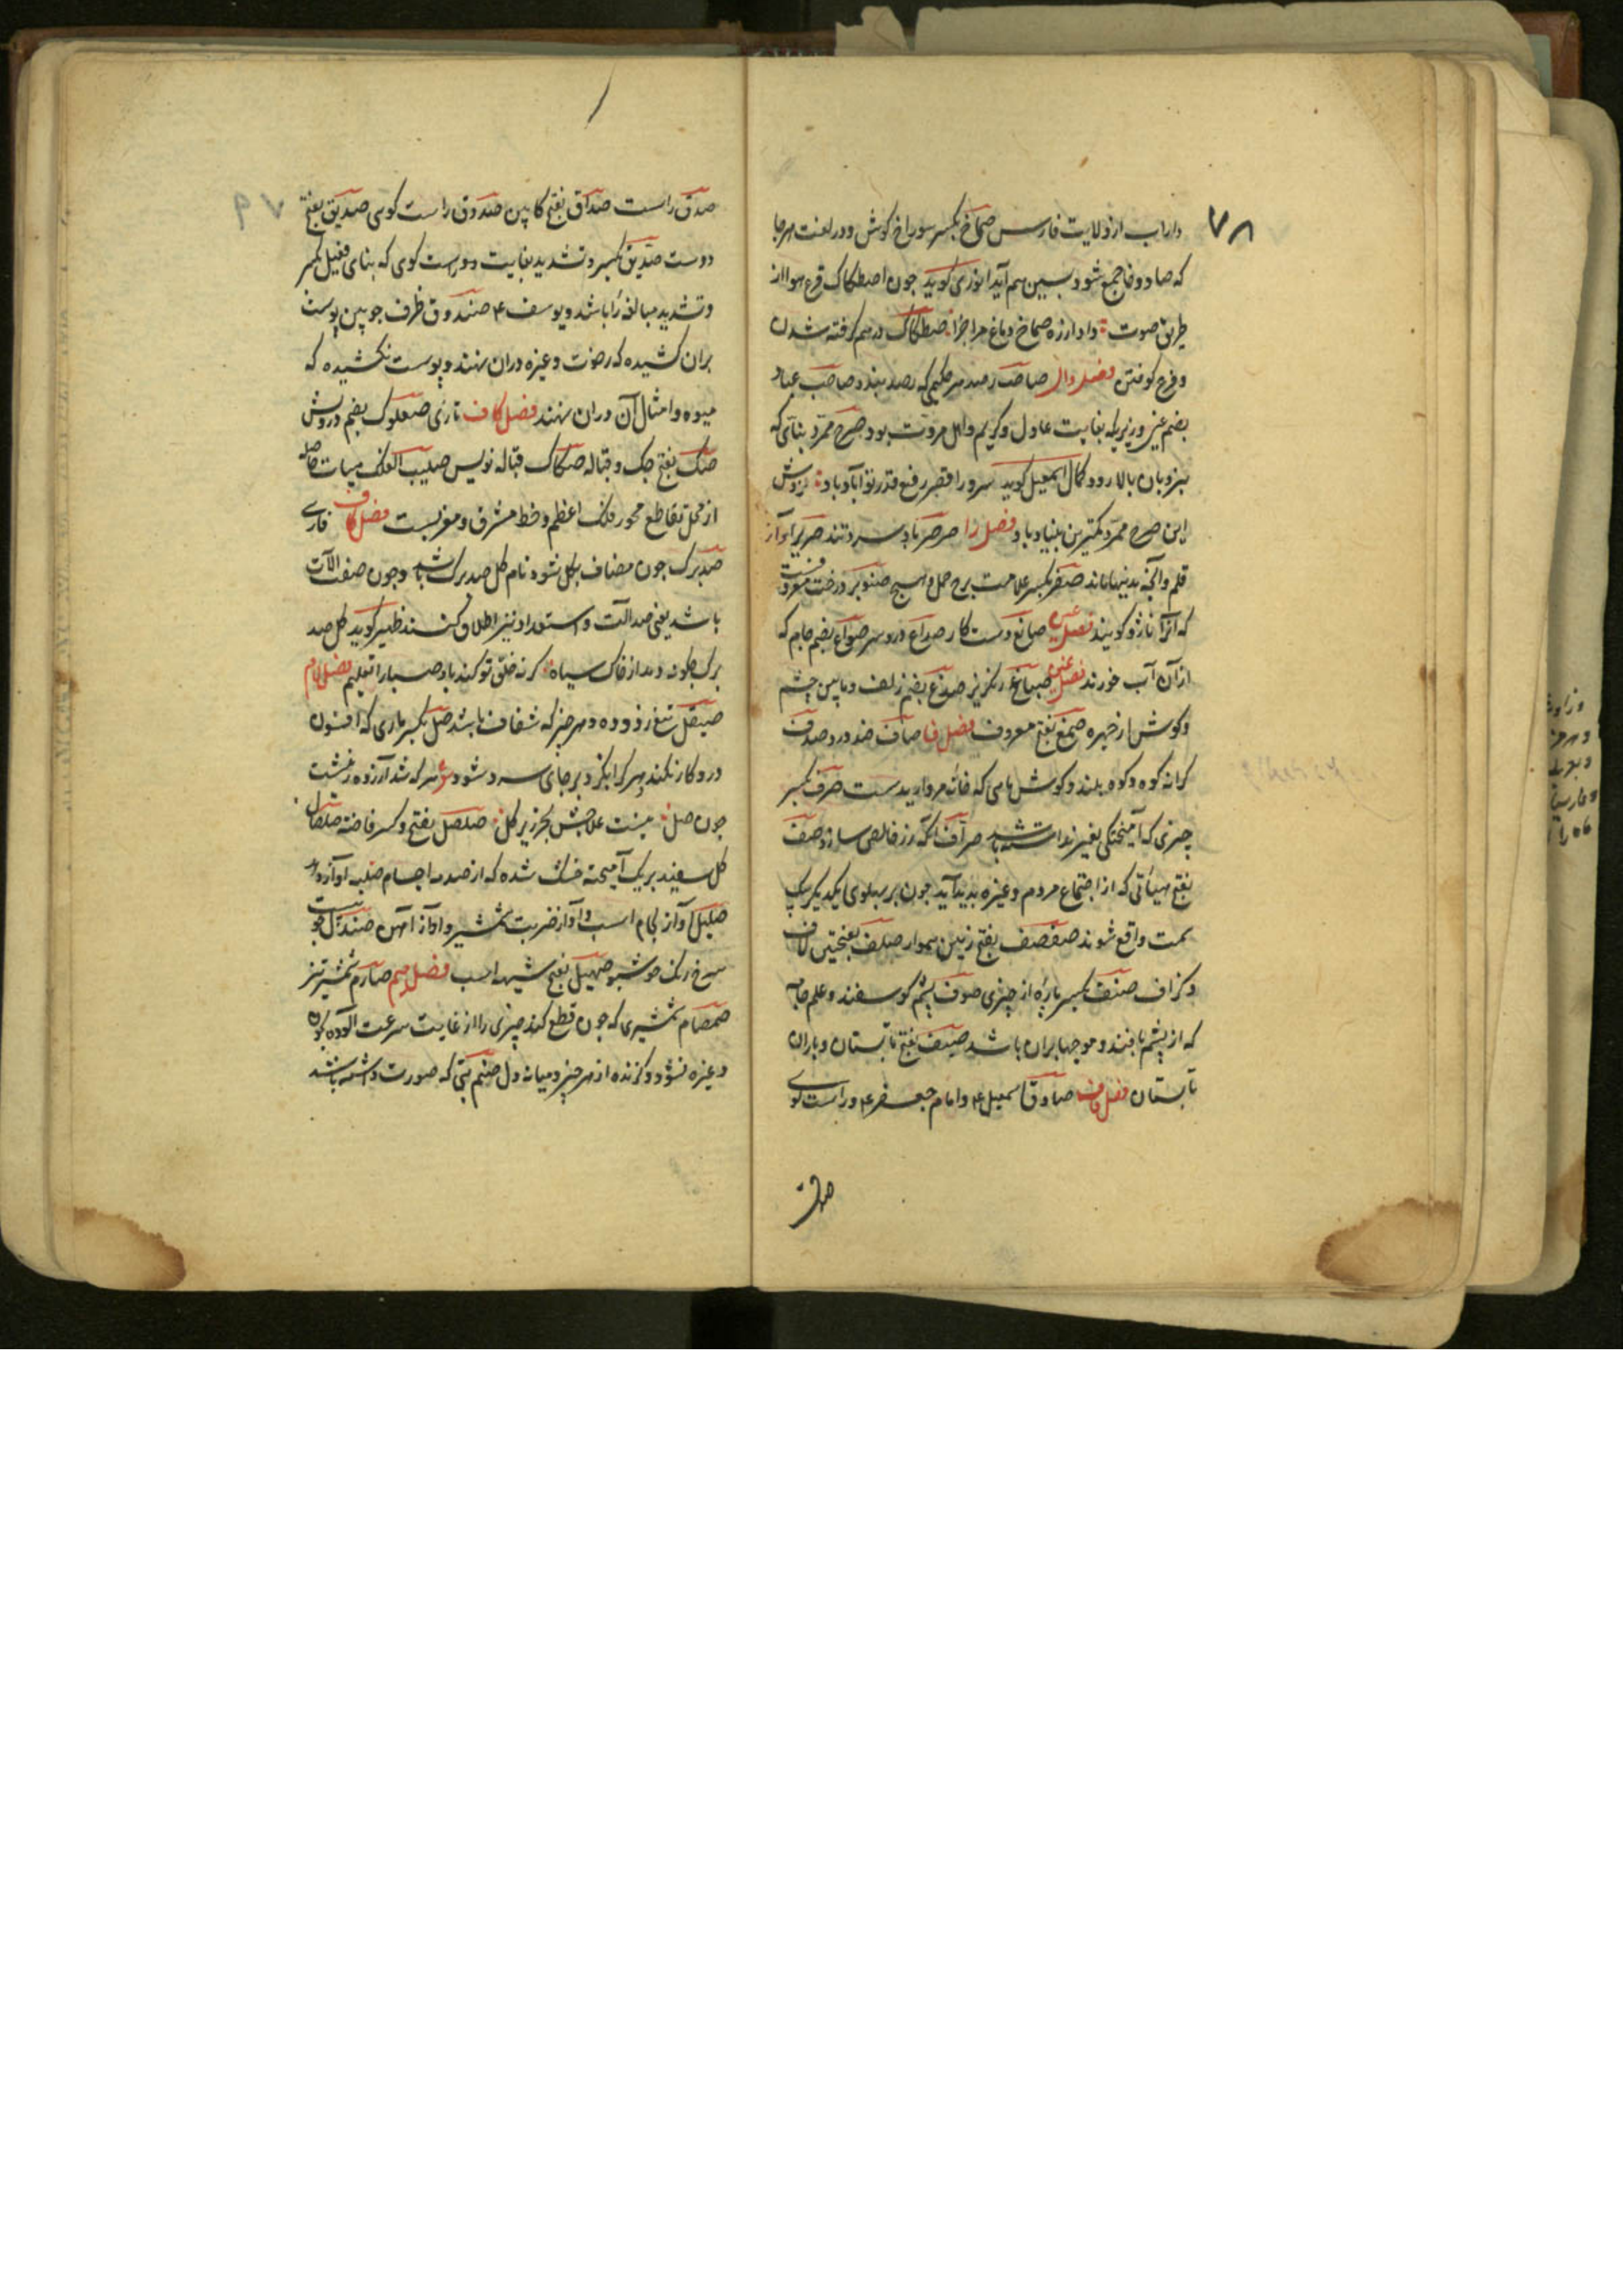 ۷۸
داراب از ولایت فارس صماخ بکسر سوراخ کوش و در لغت هر جا
که صاد و خا جمع شود بسین هم آید انوری کوید چون اصطکاک قرع هوا از
طریق صوت داد از ره صماخ دماغ مرا خبر اصطکاک درهم کوفته شدن
و قرع کوفتن فصل دال صاحب رصد هر حکیمی که رصد بندد صاحب عباد
بضم عین وزیری که بغایت عادل و کریم و اهل مروت بود صرح ممرد بنائی که
بنردبان بالا رود کمال اسمعیل کوید سرورا قصر رفیع قدر تو آباد باد
این صرح ممرد کمترین بنیاد باد فصل را صرصر باد سرد تند صریر آواز
قلم و آنچه بدینها ماند صفر بکسر علامت برج حمل و هیچ صنوبر درخت معروفست
که آنرا ناژو کویند فصل عین صانع دست کار صداع درد سر صواع بضم جام که
از آن آب خورند فصل غین صباغ رنکریز صدغ بضم زلف و مابین چشم
و کوش از چهره صمغ بفتح معروف فصل فا صاف ضد درد صدف
کرانه کوه و کوه بلند و کوش ماهی که خانه مرواریدست صرف بکسر
چیزی که آمیختکی بغیر نداشته باشد صراف آنکه زر خالص سازد صف
بفتح هیأتی که از اجتماع مردم و غیره پدید آید چون بر پهلوی یکدیکر بیک
سمت واقع شوند صفصف بفتح زمین هموار صلف بفتحتین لاف
و کزاف صنف بکسر پاره از چیزی صوف پشم کوسفند و علم جامه
که از پشم بافند و موجها بران باشد صیف بفتح تابستان و باران
تابستان فصل قاف صادق اسمعیل ع و امام جعفر ع و راست کوی
صدق
۷۹
صدق راست صداق بفتح کابین صدوق راست کوی صدیق بفتح
دوست صدیق بکسر و تشدید بغایت دوراست کوی که بنای فعیل بکسر
و تشدید مبالغه را باشد و یوسف ع صندوق ظرف چوبین پوست
بران کشیده که رخت و غیره دران نهند و پوست نکشیده که
میوه و امثال آن دران نهند فصل کاف تازی صعلوک بضم درویش
صک بفتح چک و قباله صکاک قباله نویس صلیب الفلک هیأت حاصله
از محل تقاطع محور فلک اعظم و خط مشرق و مغربست فصل کاف فارسی
صدبرک چون مضاف بکل شود نام کل صدبرک باشد و چون صفت آلات
باشد یعنی صد آلت و استعداد نیز اطلاق کنند ظهیر کوید کل صد
برک چکونه دمد از خاک سیاه کر نه خلق تو کند باد صبا را تعلیم فصل لام
صیقل تیغ زدوده و هر چیز که شفاف باشد صل بکسر ماری که افسون
درو کار نکند و هر کرا بکزد بر جای سرد شود هر که شد آزرده زخشت
چون صل نیست علاجش بجز زیر کل صلصل بفتح و کسر فاخته صلصال
کل سفید بریک آمیخته خشک شده که از صدمه اجسام صلبه آواز دهد
صلیل آواز لجام اسب و آواز ضربت شمشیر و آواز آهن صندل چوبیست
سرخ رنک خوشبو صهیل بفتح شیهه اسب فصل میم صارم شمشیر تیز
صمصام شمشیری که چون قطع کند چیزی را از غایت سرعت آلوده بخون
و غیره نشود و کزنده از هر چیز و میانه دل صنم بتی که صورت داشته باشد